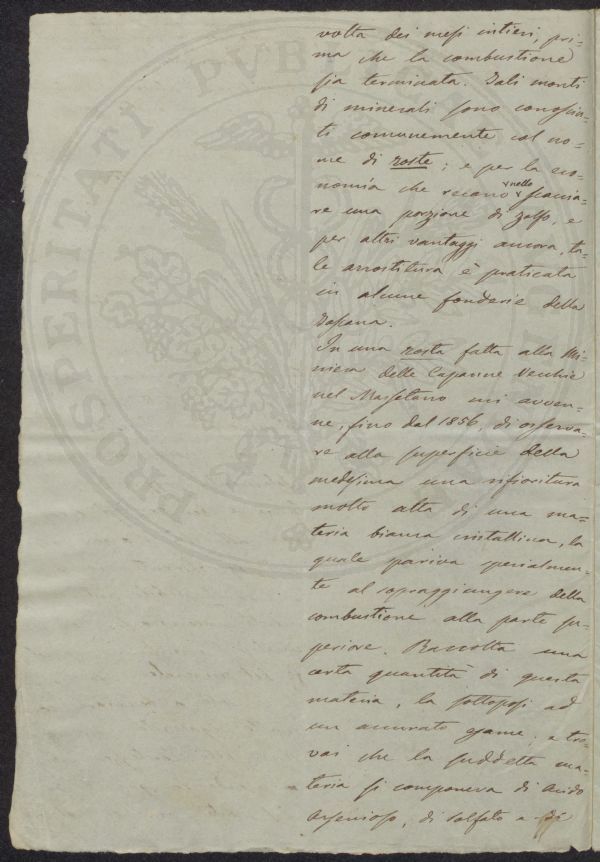 volta dei mesi intieri, pri=
ma che la combustione
sia terminata. Tali monti
di minerali sono conosciu=
ti comunemente col no=
me di roste; e per la eco=
nomia che recano nello scavia=
re una porzione di zolfo, e
per altri vantaggi ancora, ta=
le arrostitura è praticata
in alcune fonderie della
Toscana.
In una rosta fatta alla Mi=
niera delle Capanne Vecchie
nel Massetano mi avven=
ne, fino dal 1856, di osserva=
re alla superficie della
medesima una rifioritura
molto alta di una ma=
teria bianca cristallina, la
quale pariva specialmen=
te al sopraggiungere della
combustione alla parte su=
periore. Raccolta una
certa quantità di questa
materia, la sottoposi ad
un accurato esame; e tro=
vai che la suddetta ma=
teria si componeva di Acido
Arsenioso, di Solfato e di
PROSPERITATI PVB